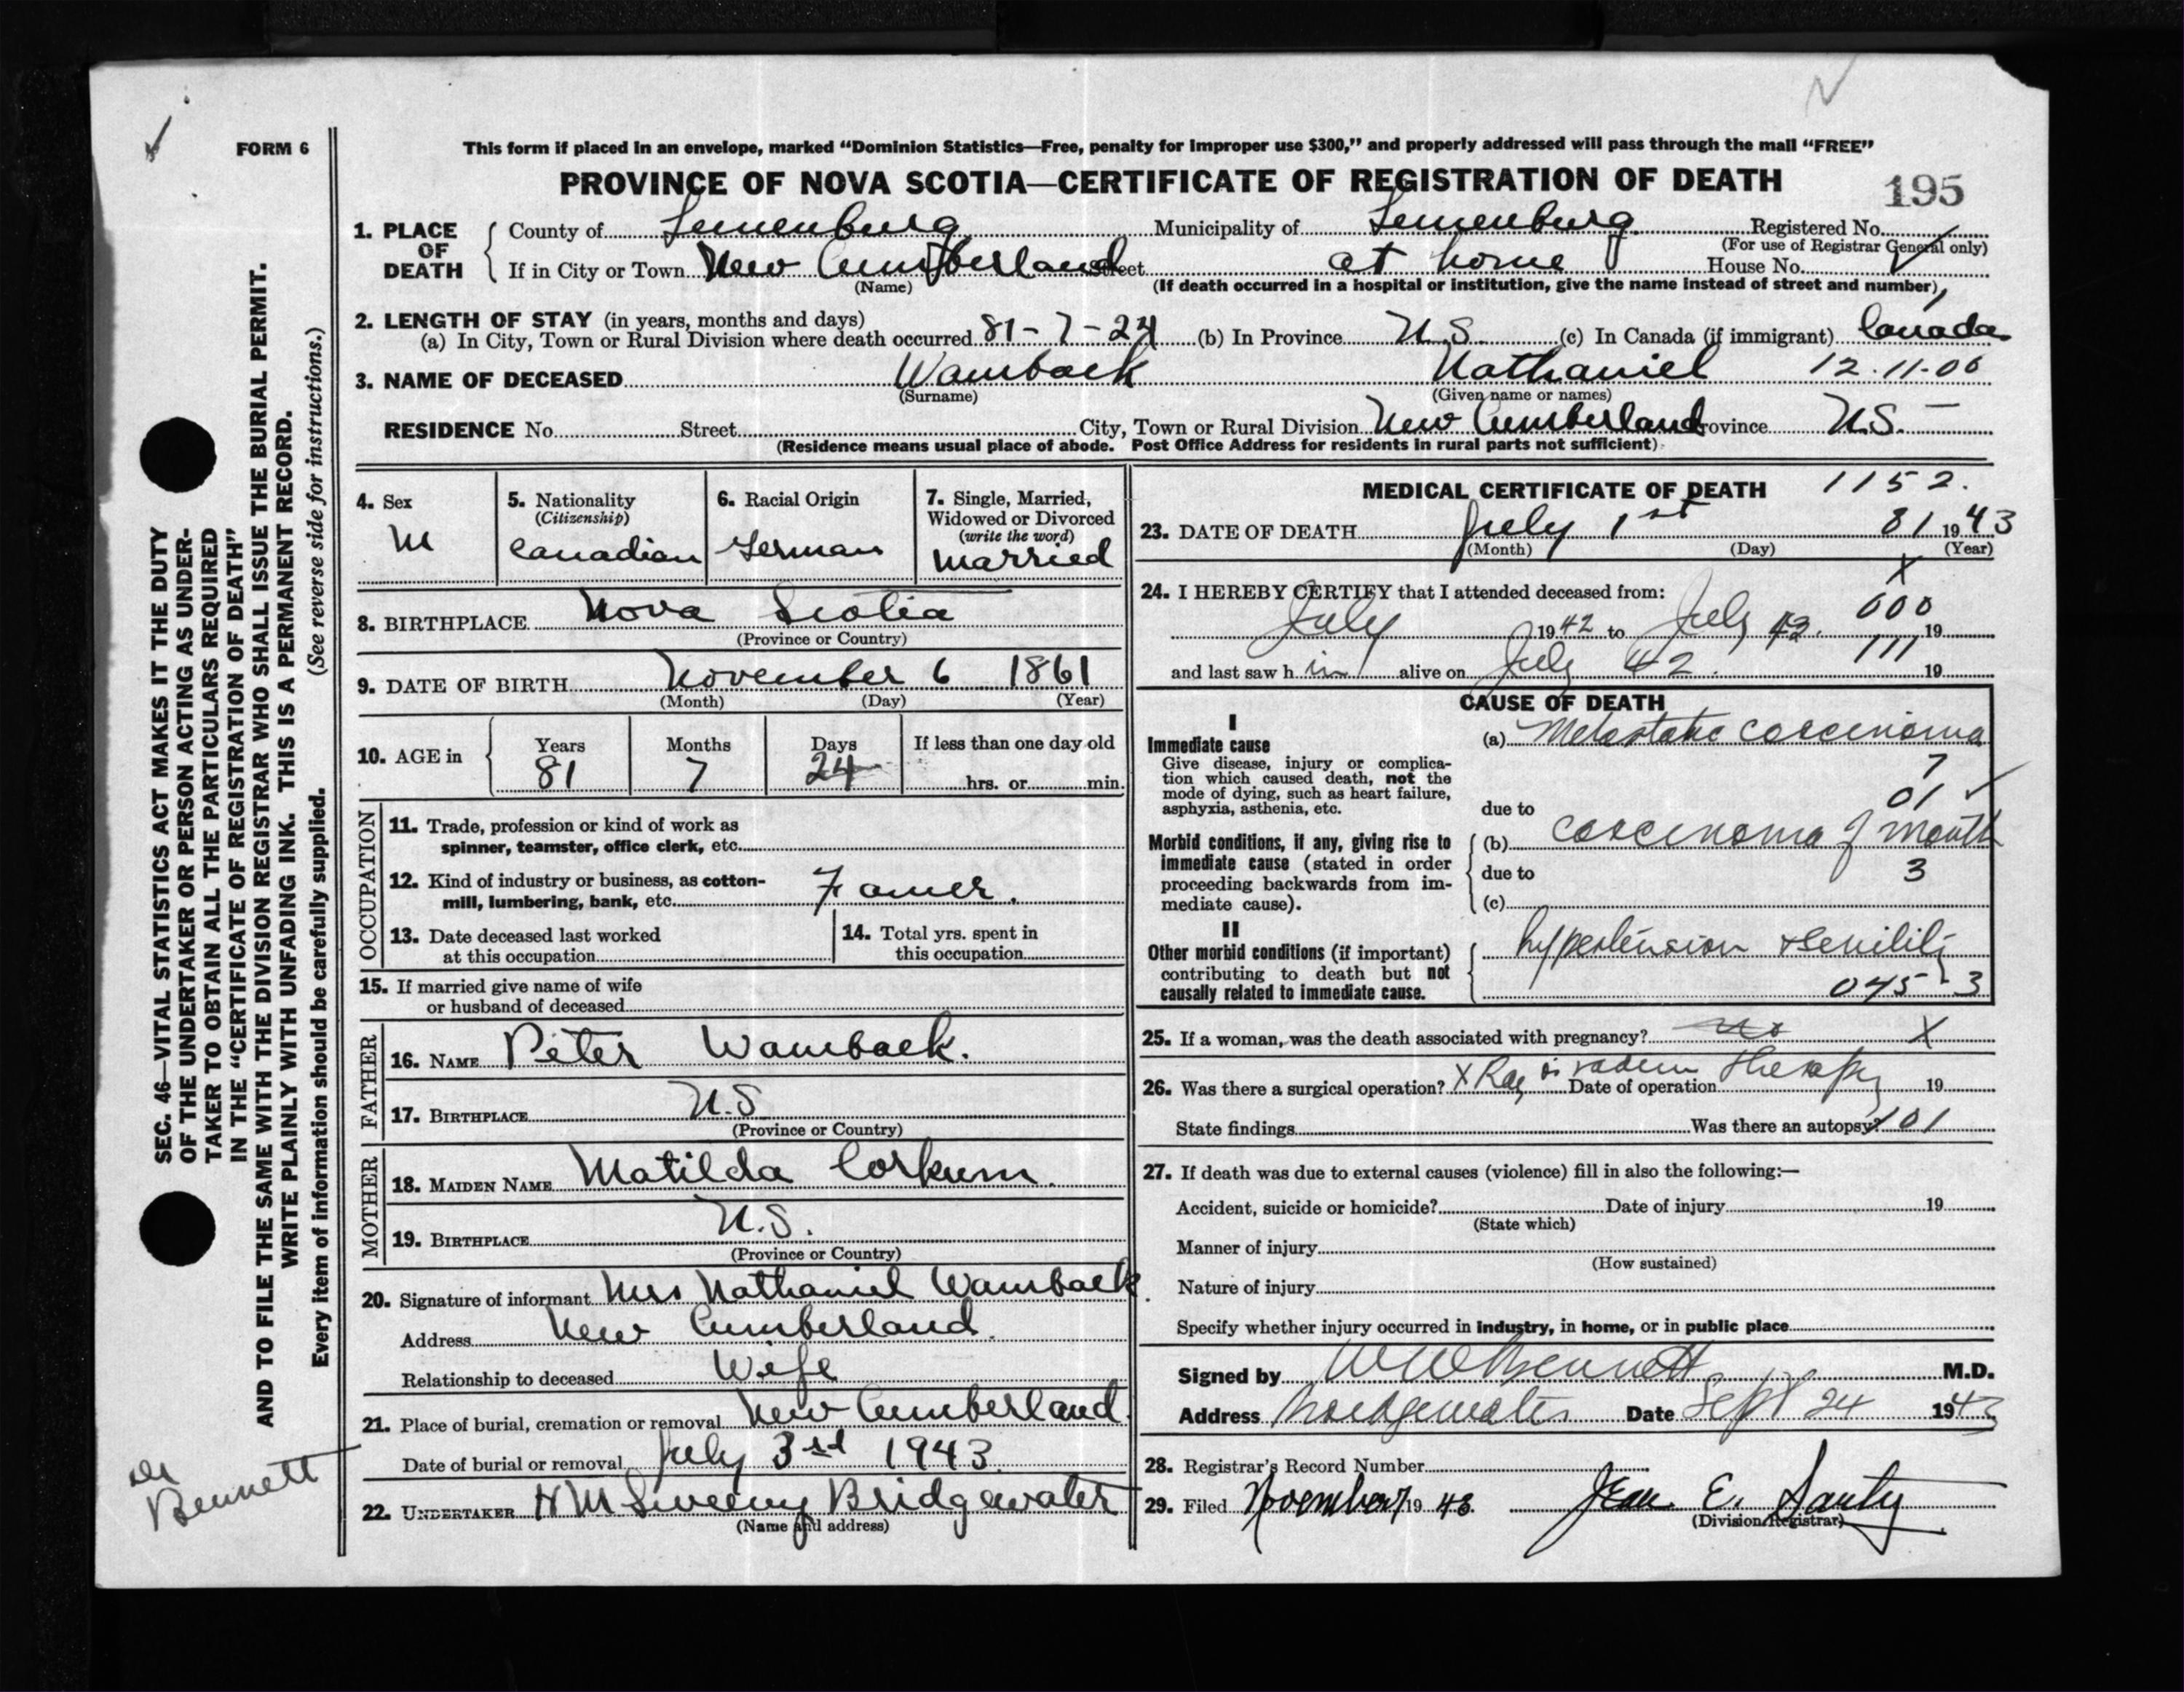 FORM 6
This form if placed in an envelope, marked “Dominion Statistics—Free, penalty for improper use $300,” and properly addressed will pass through the mail “FREE”
PROVINCE OF NOVA SCOTIA—CERTIFICATE OF REGISTRATION OF DEATH
195
1. PLACE OF DEATH
County of Lunenburg Municipality of Lunenburg Registered No.
(For use of Registrar General only)
If in City or Town New Cumberland Street at home House No.
(Name) (If death occurred in a hospital or institution, give the name instead of street and number)
2. LENGTH OF STAY (in years, months and days)
(a) In City, Town or Rural Division where death occurred 81-7-24 (b) In Province N.S. (c) In Canada (if immigrant) Canada
3. NAME OF DECEASED Wamback Nathaniel 12-11-06
(Surname) (Given name or names)
RESIDENCE No. Street City, Town or Rural Division New Cumberland Province N.S.
(Residence means usual place of abode. Post Office Address for residents in rural parts not sufficient)
4. Sex
M
5. Nationality
(Citizenship)
Canadian
6. Racial Origin
German
7. Single, Married,
Widowed or Divorced
(write the word)
Married
8. BIRTHPLACE Nova Scotia
(Province or Country)
9. DATE OF BIRTH November 6 1861
(Month) (Day) (Year)
10. AGE in
Years Months Days If less than one day old
81 7 24 hrs. or min.
OCCUPATION
11. Trade, profession or kind of work as
spinner, teamster, office clerk, etc.
12. Kind of industry or business, as cotton-
mill, lumbering, bank, etc. Famer.
13. Date deceased last worked
at this occupation
14. Total yrs. spent in
this occupation
15. If married give name of wife
or husband of deceased
FATHER
16. NAME Peter Wamback.
17. BIRTHPLACE N.S
(Province or Country)
MOTHER
18. MAIDEN NAME Matilda Corkum.
19. BIRTHPLACE N.S.
(Province or Country)
20. Signature of informant Mrs Nathaniel Wamback.
Address New Cumberland.
Relationship to deceased Wife
21. Place of burial, cremation or removal New Cumberland.
Date of burial or removal July 3rd 1943.
22. UNDERTAKER H M Sweeny Bridgewater
(Name and address)
MEDICAL CERTIFICATE OF DEATH 1152.
23. DATE OF DEATH July 1st 81 1943
(Month) (Day) (Year)
X
24. I HEREBY CERTIFY that I attended deceased from:
July 1942 to July 43. 000 19
and last saw h im alive on July 42. 111 19
CAUSE OF DEATH
I
Immediate cause
Give disease, injury or complica-
tion which caused death, not the
mode of dying, such as heart failure,
asphyxia, asthenia, etc.
(a) Metastatic carcinoma
7
01
due to
Morbid conditions, if any, giving rise to
immediate cause (stated in order
proceeding backwards from im-
mediate cause).
(b) carcinoma of mouth
due to 3
(c)
II
Other morbid conditions (if important)
contributing to death but not
causally related to immediate cause.
hypertension & senility
045-3
25. If a woman, was the death associated with pregnancy? no X
26. Was there a surgical operation? X Ray or radium Date of operation therapy 19
State findings Was there an autopsy? 101
27. If death was due to external causes (violence) fill in also the following:—
Accident, suicide or homicide? Date of injury 19
(State which)
Manner of injury
(How sustained)
Nature of injury
Specify whether injury occurred in industry, in home, or in public place
Signed by W W Bennett M.D.
Address Bridgewater Date Sept 24 1943
28. Registrar's Record Number
29. Filed November 7 1943. Jean E.
(Division Registrar)
SEC. 46—VITAL STATISTICS ACT MAKES IT THE DUTY
OF THE UNDERTAKER OR PERSON ACTING AS UNDER-
TAKER TO OBTAIN ALL THE PARTICULARS REQUIRED
IN THE “CERTIFICATE OF REGISTRATION OF DEATH”
AND TO FILE THE SAME WITH THE DIVISION REGISTRAR WHO SHALL ISSUE THE BURIAL PERMIT.
WRITE PLAINLY WITH UNFADING INK. THIS IS A PERMANENT RECORD.
Every item of information should be carefully supplied. (See reverse side for instructions.)
Dr
Bennett